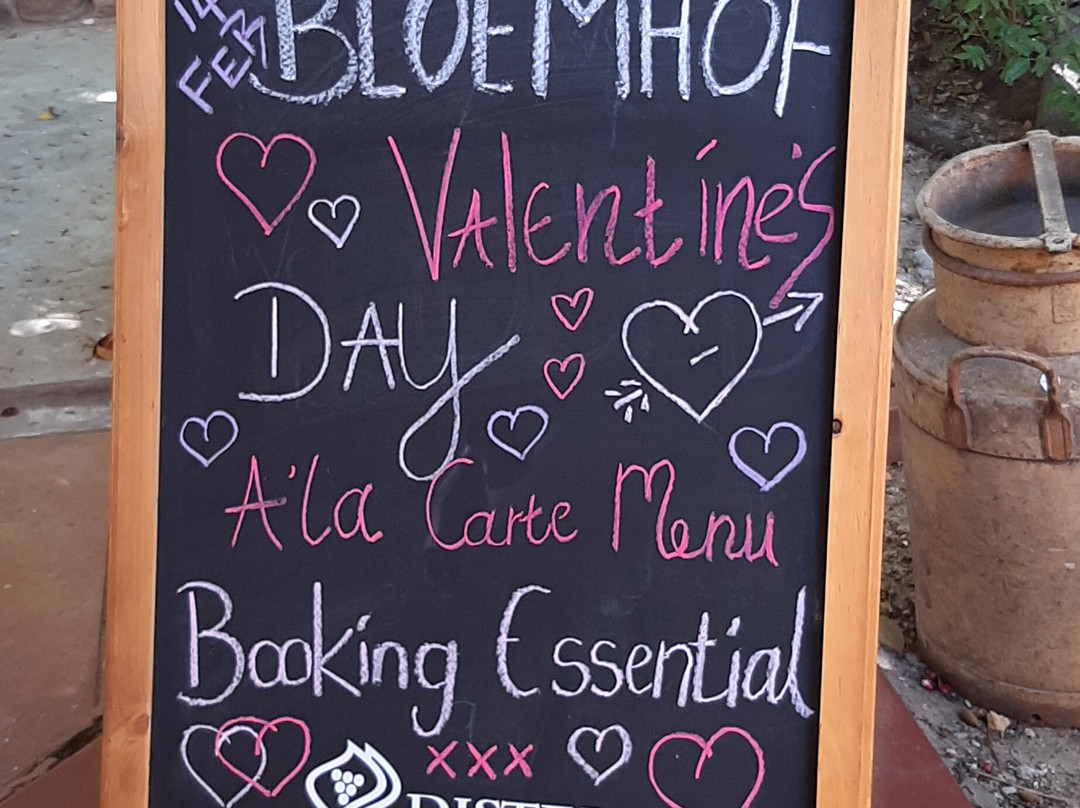 14 FEB
BLOEMHOF
Valentine's
DAY
A'la Carte Menu
Booking Essential
xxx